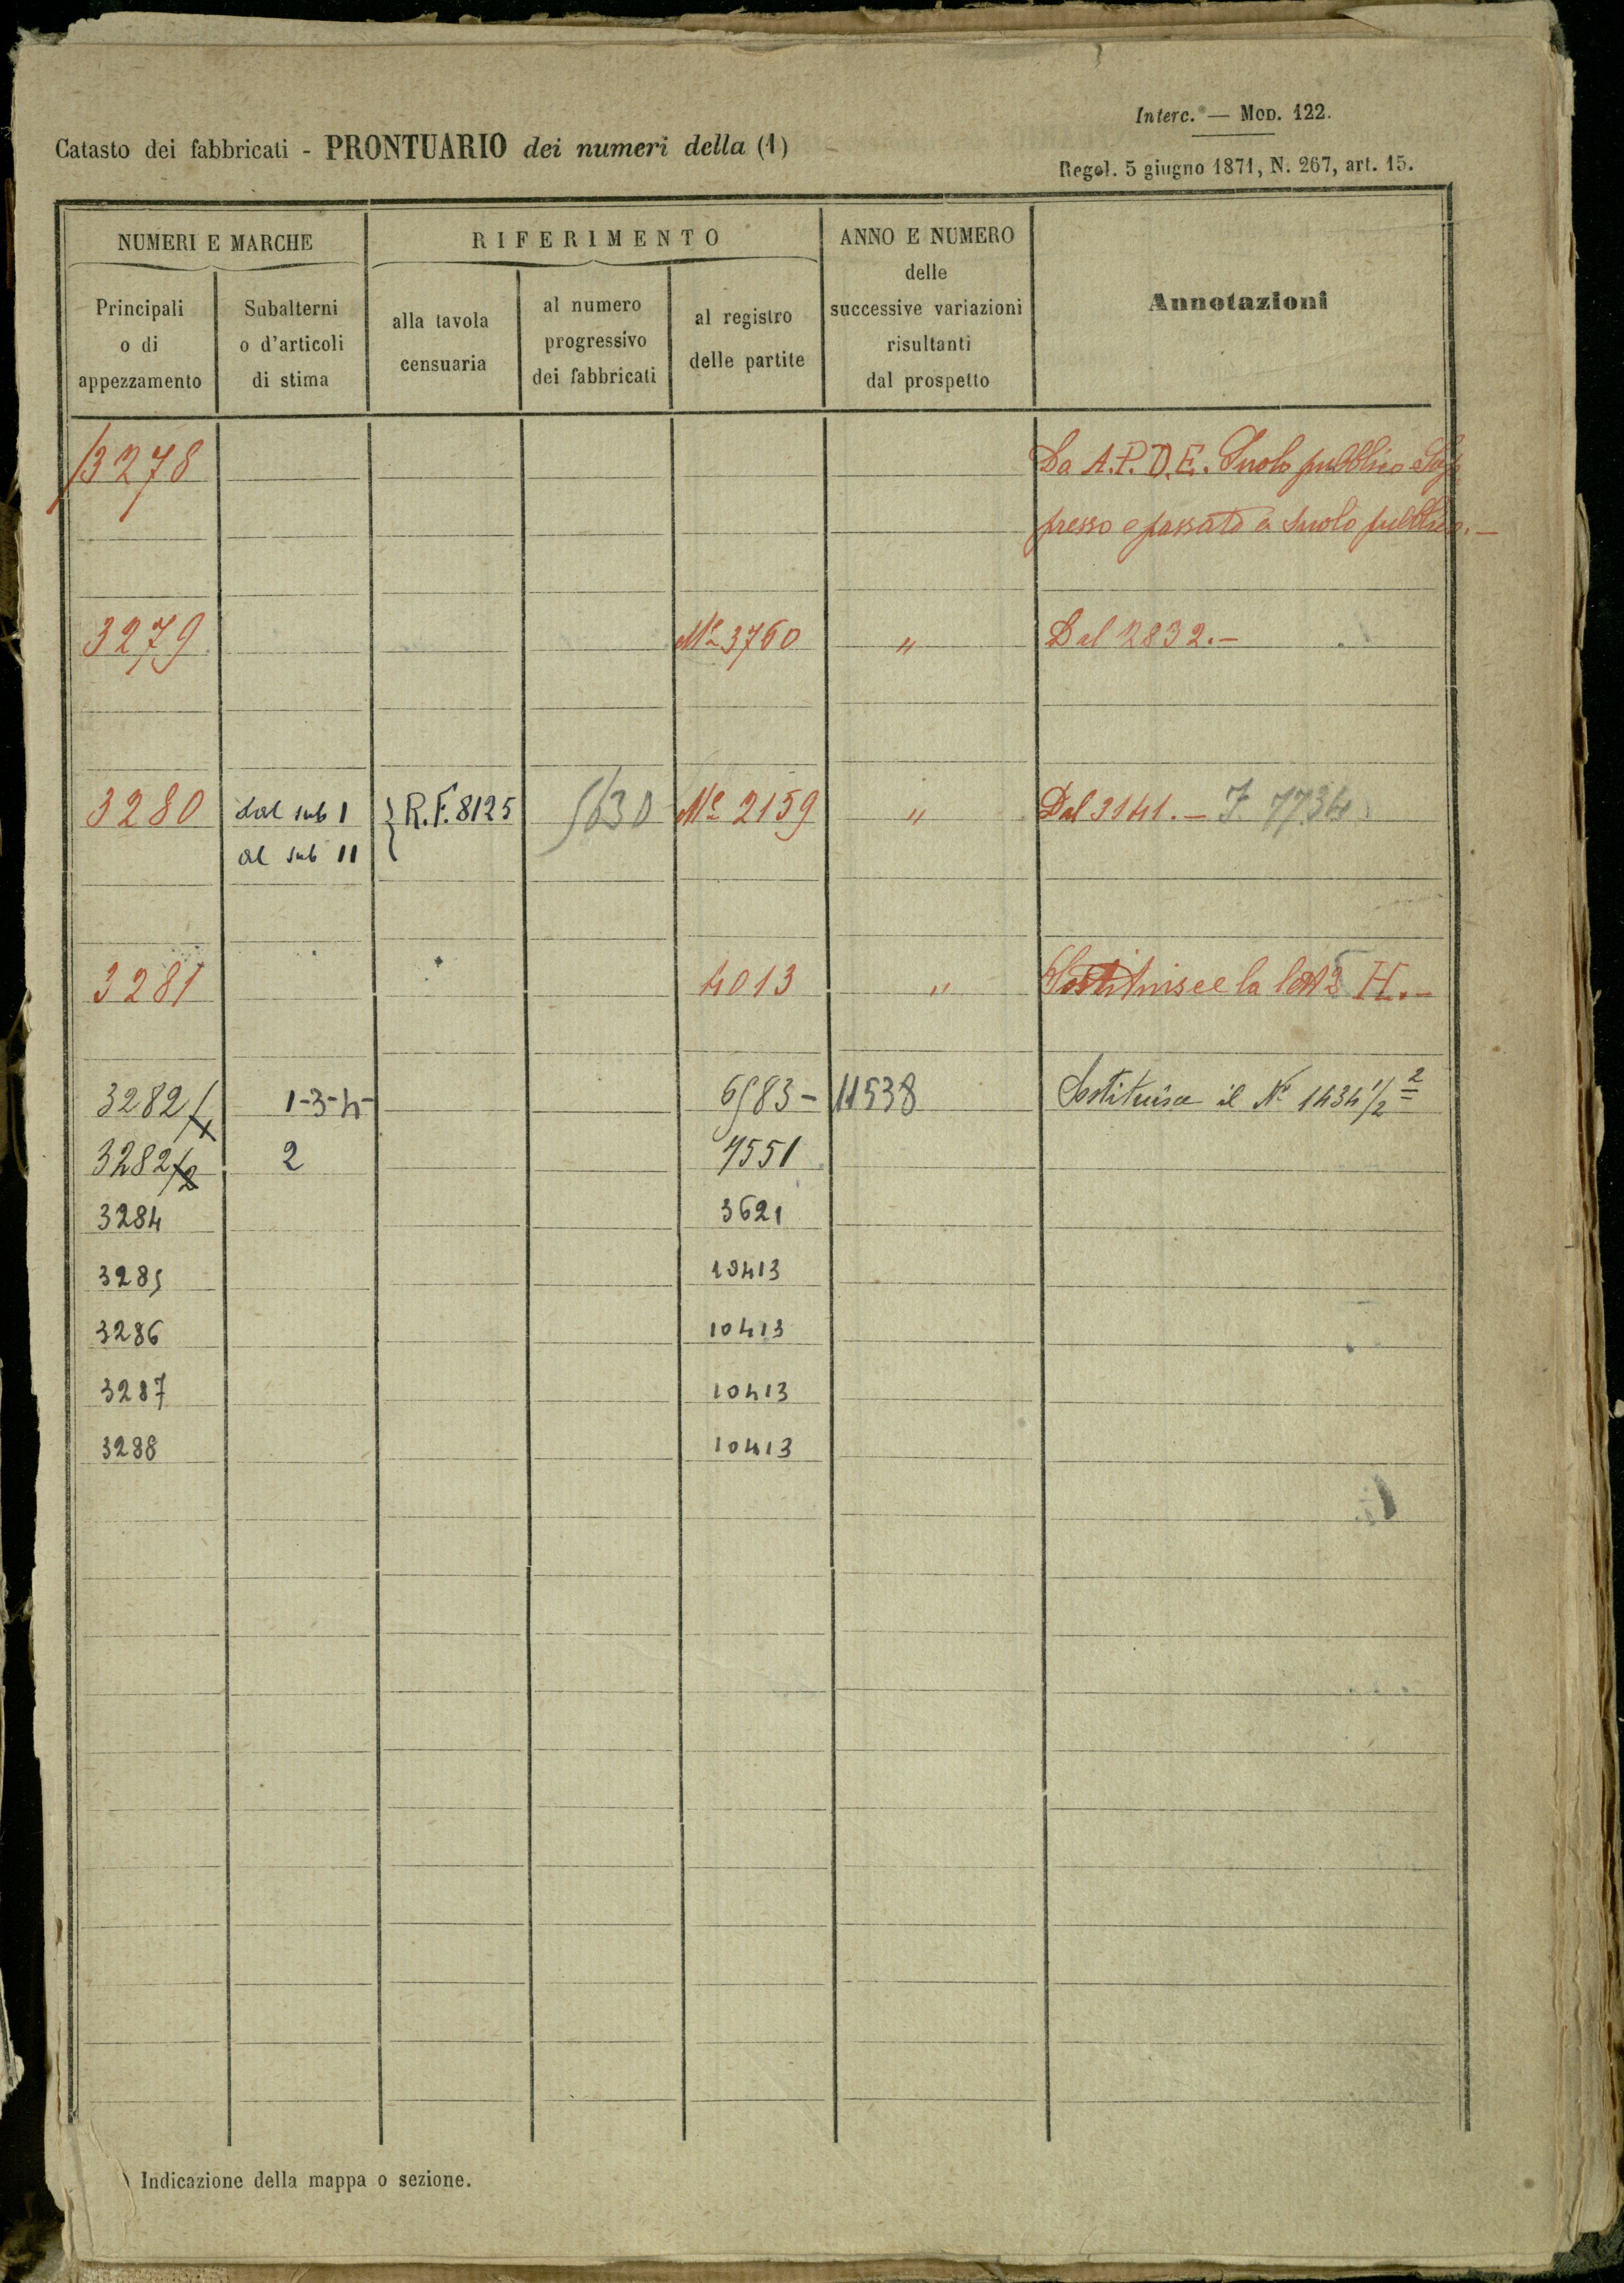 Interc. — Mod. 122.
Catasto dei fabbricati - PRONTUARIO dei numeri della (1)
Regol. 5 giugno 1871, N. 267, art. 15.
NUMERI E MARCHE
Principali o di appezzamento
Subalterni o d'articoli di stima
RIFERIMENTO
alla tavola censuaria
al numero progressivo dei fabbricati
al registro delle partite
ANNO E NUMERO delle successive variazioni risultanti dal prospetto
Annotazioni
3278 Da A.P.D.E. Suolo pubblico Sop
presso e passato a suolo pubblico.—
3279 Ma 3760 " Dal 2832.—
3280 dal sub 1 } R.F. 8125 5630 Ma 2159 " Dal 3141.— 7734
al sub 11
3281 4013 " Sostituisce la lett. H.—
3282/1 1-3-4- 6583- 11538 Sostituisce il No 1434 1/2 2
3282/2 2 7551
3284 3621
3285 10413
3286 10413
3287 10413
3288 10413
) Indicazione della mappa o sezione.